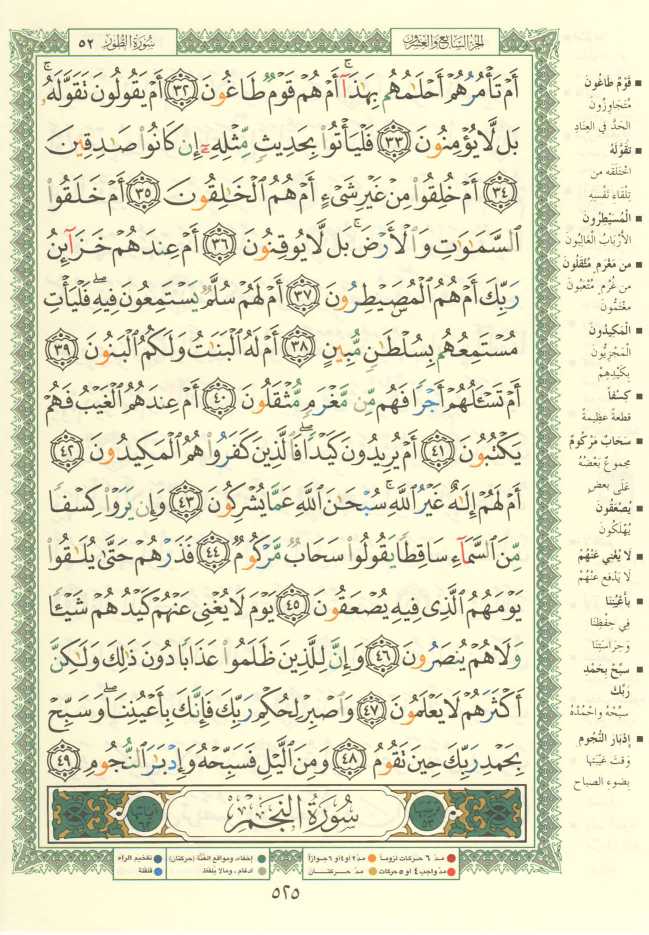 الجزء السابع والعشرون
سورة الطور ٥٢
أَمْ تَأْمُرُهُمْ أَحْلَٰمُهُم بِهَٰذَآ ۚ أَمْ هُمْ قَوْمٌ طَاغُونَ ٣٢ أَمْ يَقُولُونَ تَقَوَّلَهُۥ ۚ
بَل لَّا يُؤْمِنُونَ ٣٣ فَلْيَأْتُوا۟ بِحَدِيثٍ مِّثْلِهِۦٓ إِن كَانُوا۟ صَٰدِقِينَ
٣٤ أَمْ خُلِقُوا۟ مِنْ غَيْرِ شَىْءٍ أَمْ هُمُ ٱلْخَٰلِقُونَ ٣٥ أَمْ خَلَقُوا۟
ٱلسَّمَٰوَٰتِ وَٱلْأَرْضَ ۚ بَل لَّا يُوقِنُونَ ٣٦ أَمْ عِندَهُمْ خَزَآئِنُ
رَبِّكَ أَمْ هُمُ ٱلْمُصَۣيْطِرُونَ ٣٧ أَمْ لَهُمْ سُلَّمٌ يَسْتَمِعُونَ فِيهِ ۖ فَلْيَأْتِ
مُسْتَمِعُهُم بِسُلْطَٰنٍ مُّبِينٍ ٣٨ أَمْ لَهُ ٱلْبَنَٰتُ وَلَكُمُ ٱلْبَنُونَ ٣٩
أَمْ تَسْـَٔلُهُمْ أَجْرًا فَهُم مِّن مَّغْرَمٍ مُّثْقَلُونَ ٤٠ أَمْ عِندَهُمُ ٱلْغَيْبُ فَهُمْ
يَكْتُبُونَ ٤١ أَمْ يُرِيدُونَ كَيْدًا ۖ فَٱلَّذِينَ كَفَرُوا۟ هُمُ ٱلْمَكِيدُونَ ٤٢
أَمْ لَهُمْ إِلَٰهٌ غَيْرُ ٱللَّهِ ۚ سُبْحَٰنَ ٱللَّهِ عَمَّا يُشْرِكُونَ ٤٣ وَإِن يَرَوْا۟ كِسْفًا
مِّنَ ٱلسَّمَآءِ سَاقِطًا يَقُولُوا۟ سَحَابٌ مَّرْكُومٌ ٤٤ فَذَرْهُمْ حَتَّىٰ يُلَٰقُوا۟
يَوْمَهُمُ ٱلَّذِى فِيهِ يُصْعَقُونَ ٤٥ يَوْمَ لَا يُغْنِى عَنْهُمْ كَيْدُهُمْ شَيْـًٔا
وَلَا هُمْ يُنصَرُونَ ٤٦ وَإِنَّ لِلَّذِينَ ظَلَمُوا۟ عَذَابًا دُونَ ذَٰلِكَ وَلَٰكِنَّ
أَكْثَرَهُمْ لَا يَعْلَمُونَ ٤٧ وَٱصْبِرْ لِحُكْمِ رَبِّكَ فَإِنَّكَ بِأَعْيُنِنَا ۖ وَسَبِّحْ
بِحَمْدِ رَبِّكَ حِينَ تَقُومُ ٤٨ وَمِنَ ٱلَّيْلِ فَسَبِّحْهُ وَإِدْبَٰرَ ٱلنُّجُومِ ٤٩
سُورَةُ النَّجْمِ
■ قَوْمٌ طَاغُونَ
مُتَجَاوِزُونَ
الحَدَّ في العِنَادِ
■ تَقَوَّلَهُ
اخْتَلَقَه من
تِلْقَاءِ نَفْسِهِ
■ الْمُسَيْطِرُونَ
الأَرْبَابُ الغَالِبُونَ
■ من مَغْرَمٍ مُثْقَلُونَ
من غُرْمٍ مُتْعَبُونَ
مغْتَمُّونَ
■ الْمَكِيدُونَ
المَجْزِيُّون
بكَيْدِهِمْ
■ كِسْفاً
قطعةً عظيمةً
■ سَحَابٌ مَرْكُومٌ
مجموعٌ بَعْضُهُ
عَلَى بعضٍ
■ يُصْعَقُونَ
يُهْلَكُونَ
■ لا يُغْنِي عَنْهُمْ
لا يَدْفَع عنْهُمْ
■ بأعْيُنِنَا
فِي حِفْظِنَا
وَحِرَاسَتِنَا
■ سَبِّحْ بِحَمْدِ
رَبِّكَ
سبِّحْهُ واحْمَدْهُ
■ إِدْبَارَ النُّجُومِ
وَقتَ غَيْبَتِها
بِضوءِ الصباحِ
● مدّ ٦ حركات لزوماً ● مدّ ٢ أو ٤ أو ٦ جوازاً ● إخفاء، ومواقع الغُنَّة (حركتان) ● تفخيم الراء
● مدّ واجب ٤ أو ٥ حركات ● مدّ حركتان ● ادغام، ومالا يلفظ ● قلقلة
٥٢٥